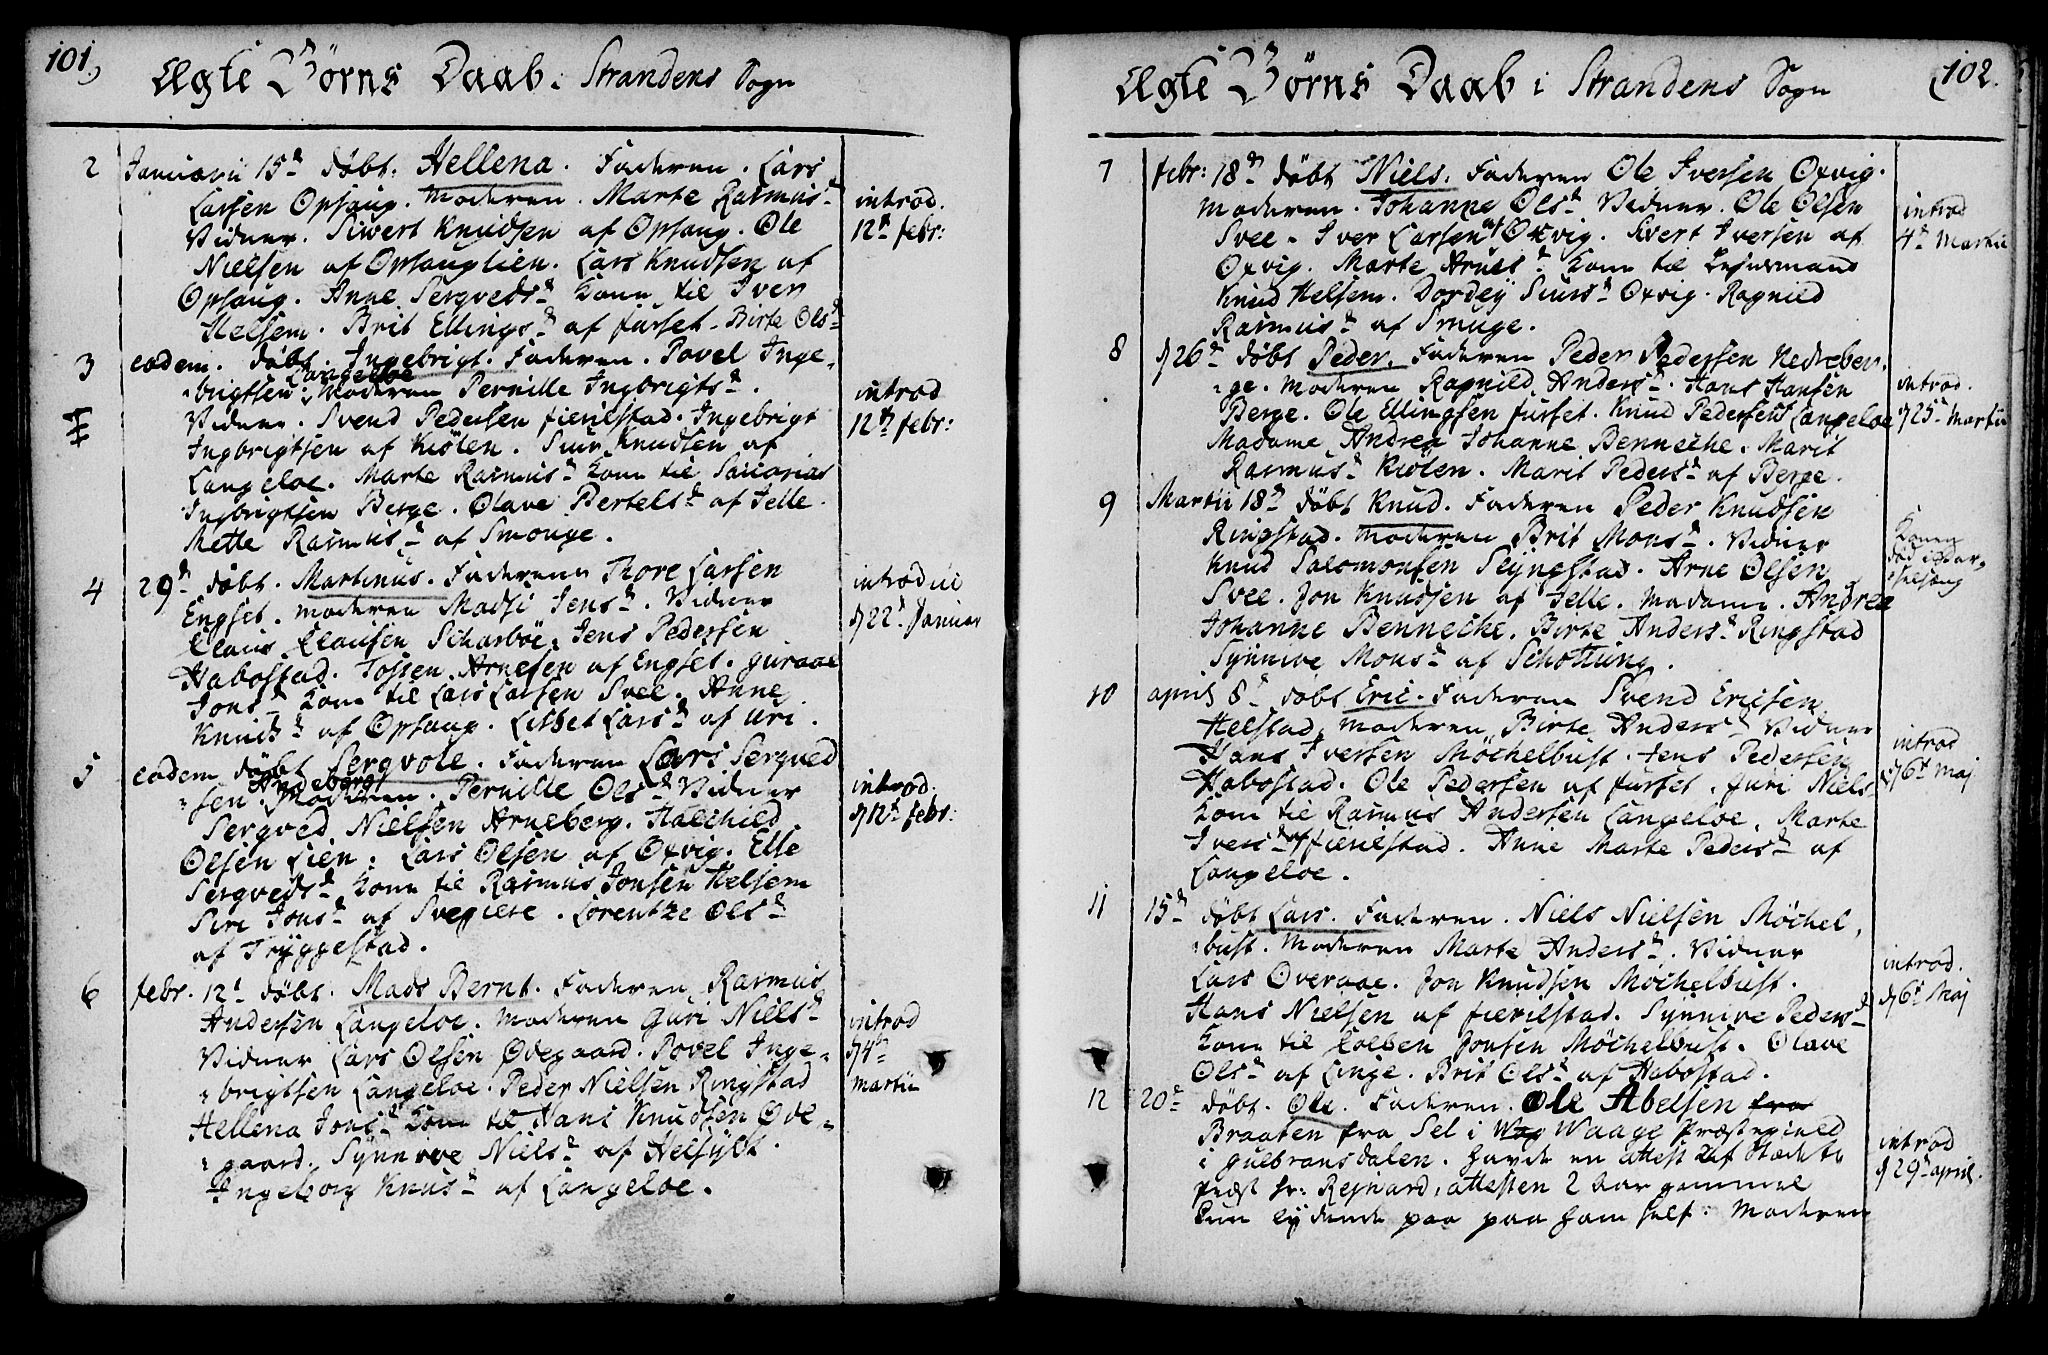 101,
Ægte Börns Daab i Strandens Sogn
2 Januarii 15de döbt. Hellena. Faderen. Lars
Larsen Opsaug. Moderen. Marte Rasmusd
Vidner. Siwert Knudsen af Opsaug. Ole
Nielsen af Opsauglien. Lars Knudsen af
Opsaug. Anne Sergvedsd Kone til Iver
Helsem. Brit Ellingsd af Furset. Birte Olsd
introd.
12te febr:
3 eodem. döbt. Ingebrigt. Faderen. Povel Inge-
brigtsen Langeloe. Moderen Pernille Ingbrigtsd.
Vidner. Svend Pedersen fierilstad. Ingebrigt
Ingbrigtsen af Kiölen. Siur Knudsen af
Langeloe. Marte Rasmusd Kone til Sacarias
Ingbrigtsen Berge. Olave Bertelsd af Jelle.
Mette Rasmusd af Smouge.
introd
12te febr:
4 29de döbt. Martinus. Faderen Thore Larsen
Engset. Moderen Madsi Jensd. Vidner
Claus Clausen Scharböe. Jens Pedersen
Habostad. Tossen Arnesen af Engset. Guraae
Jonsd Kone til Lars Larsen Svee. Anne
Knudsd af Opsaug. Lisbet Larsd af Uri.
introd
d 22d Januar
5 eodem döbt Sergvole. Faderen Lars Sergved
sen Arneberg. Moderen. Pernille Olsd Vidner
Sergved Nielsen Arneberg. Halchild
Olsen Lien. Lars Olsen af Oxvig. Elle
Sergvedsd Kone til Rasmus Jonsen Helsem
Siri Jonsd af Svemiere. Lorentze Olsd
af Tryggestad.
introd.
d 12te febr:
6 febr. 12d döbt. Mads Bernt. Faderen Rasmus
Andersen Langeloe. Moderen Guri Nielsd
Vidner Lars Olsen Ödegaard. Povel Inge-
brigtsen Langeloe. Peder Nielsen Ringstad
Hellena Jonsd Kone til Hans Knudsen Öde-
gaard. Synnive Nielsd af Helsyld.
Ingeborg Knusd af Langeloe.
introd
d 4de
martii
102.
Ægte Börns Daab i Strandens Sogn
7 febr: 18de döbt Niels. Faderen Ole Iversen Oxvig.
Moderen. Johanne Olsd Vidner. Ole Olsen
Svee. Iver Larsen af Oxvig. Sivert Iversen af
Oxvig. Marte Arnesd Kone til Lehnsmand
Knud Helsem. Dordey Siursd Oxvig. Ragnild
Rasmusd af Smuge.
introd
4de Martii
8 d 26de döbt Peder. Faderen Peder Pedersen Nedreber-
ge. Moderen Ragnild Andersd. Hans Hansen
Berge. Ole Ellingsen furset. Knud Pedersen Langeloe
Madame Andrea Johanne Benneche. Marit
Rasmusd Kiölen. Marit Pedersd af Berge.
introd.
d 25d Martii
9 Martii 18de döbt Knud. Faderen Peder Knudsen
Ringstad. Moderen Brit Monsd. Vidner
Knud Salomonsen Slyngstad. Arne Olsen
Svee. Jon Knudsen af Jelle. Madame. Andrea
Johanne Benneche. Birte Andersd Ringstad
Synnive Monsd af Schottung.
Konen
död i bar-
selseng
10 april 8de döbt Eric. Faderen Svend Ericsen
Helstad. Moderen Birte Andersd Vidner
Hans Iversen Möchelbust. Jens Pedersen
Habostad. Ole Pedersen af furset. Guri Niels
Kone til Rasmus Andersen Langeloe. Marte
Iversd af fierilstad. Anne Marte Pedersd af
Langeloe.
introd
d 6te Maj
11 15de döbt Lars. Faderen. Niels Nielsen Möchel,
bust. Moderen Marte Andersd. Vidner
Lars Overaae. Jon Knudsen Möchelbust.
Hans Nielsen af fierilstad. Synnive Pedersd
Kone til Colben Jonsen Möchelbust. Olave
Olsd af Linge. Brit Olsd af Habostad.
introd.
d 6te Maj
12 20de döbt. Ole. Faderen. Ole Abelsen fra
Braaten fra Sel i Waage Præstegield
i Gulbransdalen. Havde en attest af Stædets
Præst hr: Rejnard, attesten 2 aar gammel
kun lydende paa paa ham self. Moderen
introd
d 29de april.